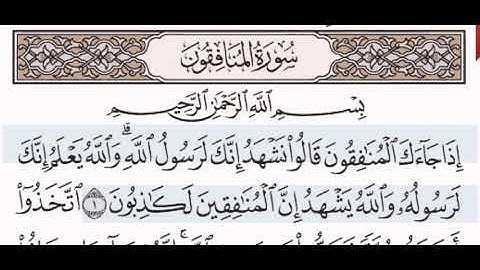 سُورَةُ الْمُنَافِقُونَ
بِسْمِ اللَّهِ الرَّحْمَٰنِ الرَّحِيمِ
إِذَا جَاءَكَ الْمُنَافِقُونَ قَالُوا نَشْهَدُ إِنَّكَ لَرَسُولُ اللَّهِ ۗ وَاللَّهُ يَعْلَمُ إِنَّكَ
لَرَسُولُهُ وَاللَّهُ يَشْهَدُ إِنَّ الْمُنَافِقِينَ لَكَاذِبُونَ ١ اتَّخَذُوا